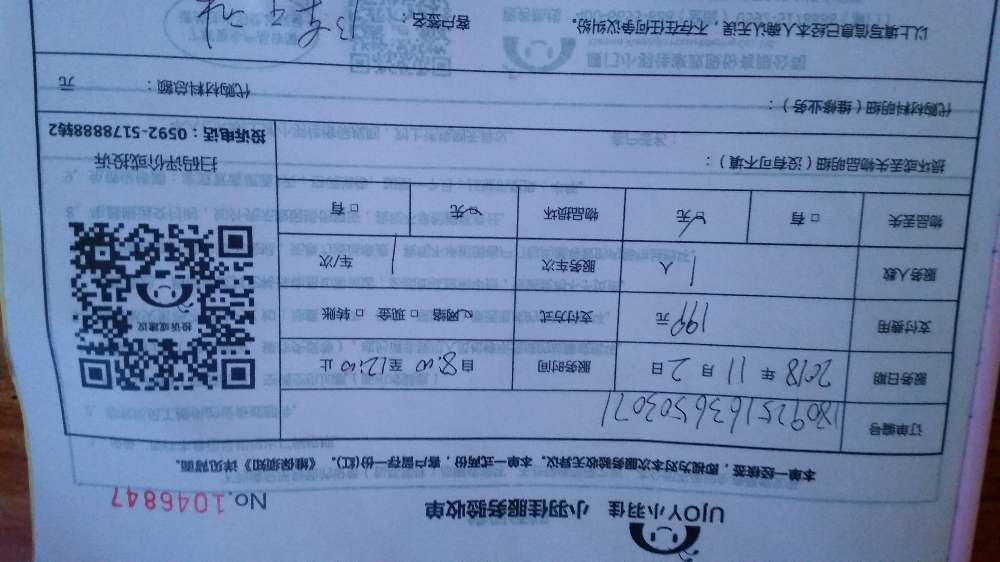 UJOY小羽佳 小羽佳服务验收单
No.1046847
本单一经核签,即视为对本次服务验收无异议。本单一式两份,客户留存一份(红)。《维保须知》详见背面。
订单编号 18092516365030​71
服务日期 2018 年 11 月 2 日 服务时间 自 8:00 至 12:00 止
支付费用 199 元 支付方式 ☑网络 □现金 □转账
服务人数 1 人 服务车次 1 车/次
物品丢失 □有 ☑无 物品损坏 □有 ☑无
投诉或建议
扫码评价或投诉
投诉电话:0592-5178888转2
损坏或丢失物品明细(没有可不填):
代购材料明细(维修业务): 代购材料总额: 元
以上填写信息已经本人确认无误,不存在任何争议纠纷。 客户签名: